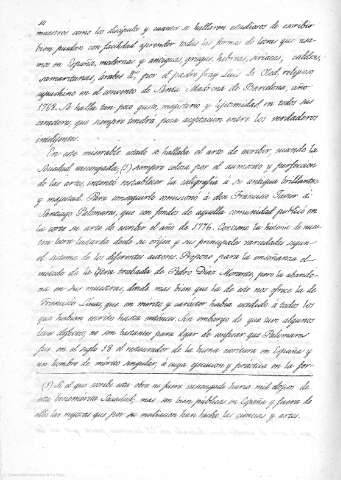 maestros como los discipulos y cuanos se hallaren estudiosos de escribir
bien puedan con facilidad aprender todas las formas de letras que usa-
mos en España, modernas y antiguas, griegas, hebreas, syriacas, caldeas,
samaritanas, árabes &c., por el padre fray Luis de Olod, religioso
capuchino en el convento de Santa Madrona de Barcelona, año
1768. Se halla tan poco gusto, magisterio y legitimidad en todos sus
caracteres que siempre tendrá poca aceptacion entre los verdaderos
inteligentes.
En este miserable estado se hallaba el arte de escribir, cuando la
Sociedad vascongada, (1) siempre celosa por el aumento y perfeccion
de las artes, intentó restablecer la caligrafía á su antigua brillantez
y magestad. Para conseguirlo comisionó á don Francisco Xavier de
Santiago Palomares, que con fondos de aquella comunidad publicó en
la corte su arte de escribir el año de 1776. Contiene la historia de nues-
tra letra bastarda desde su origen y sus principales variedades segun
el sistema de los diferentes autores. Propone para la enseñanza el
método de la letra trabada de Pedro Diaz Morante, pero la abando-
na en sus muestras, donde mas bien que la de este nos ofrece la de
Francisco Lucas, que en maestría y caracter habia excedido á todos los
que habian escrito hasta entonces. Sin embargo de que tiene algunos
leves defectos, no son bastantes para dejar de confesar que Palomares
fue en el siglo 18 el restaurador de la buena escritura en España y
un hombre de mérito singular, á cuya ejecucion y práctica en la for-
(1) Si el que escribe esta obra no fuera vascongado haria mil elogios de
esta benemérita Sociedad; mas son bien públicas en España y fuera de
ella las mejoras que por su motivacion han hecho las ciencias y artes.